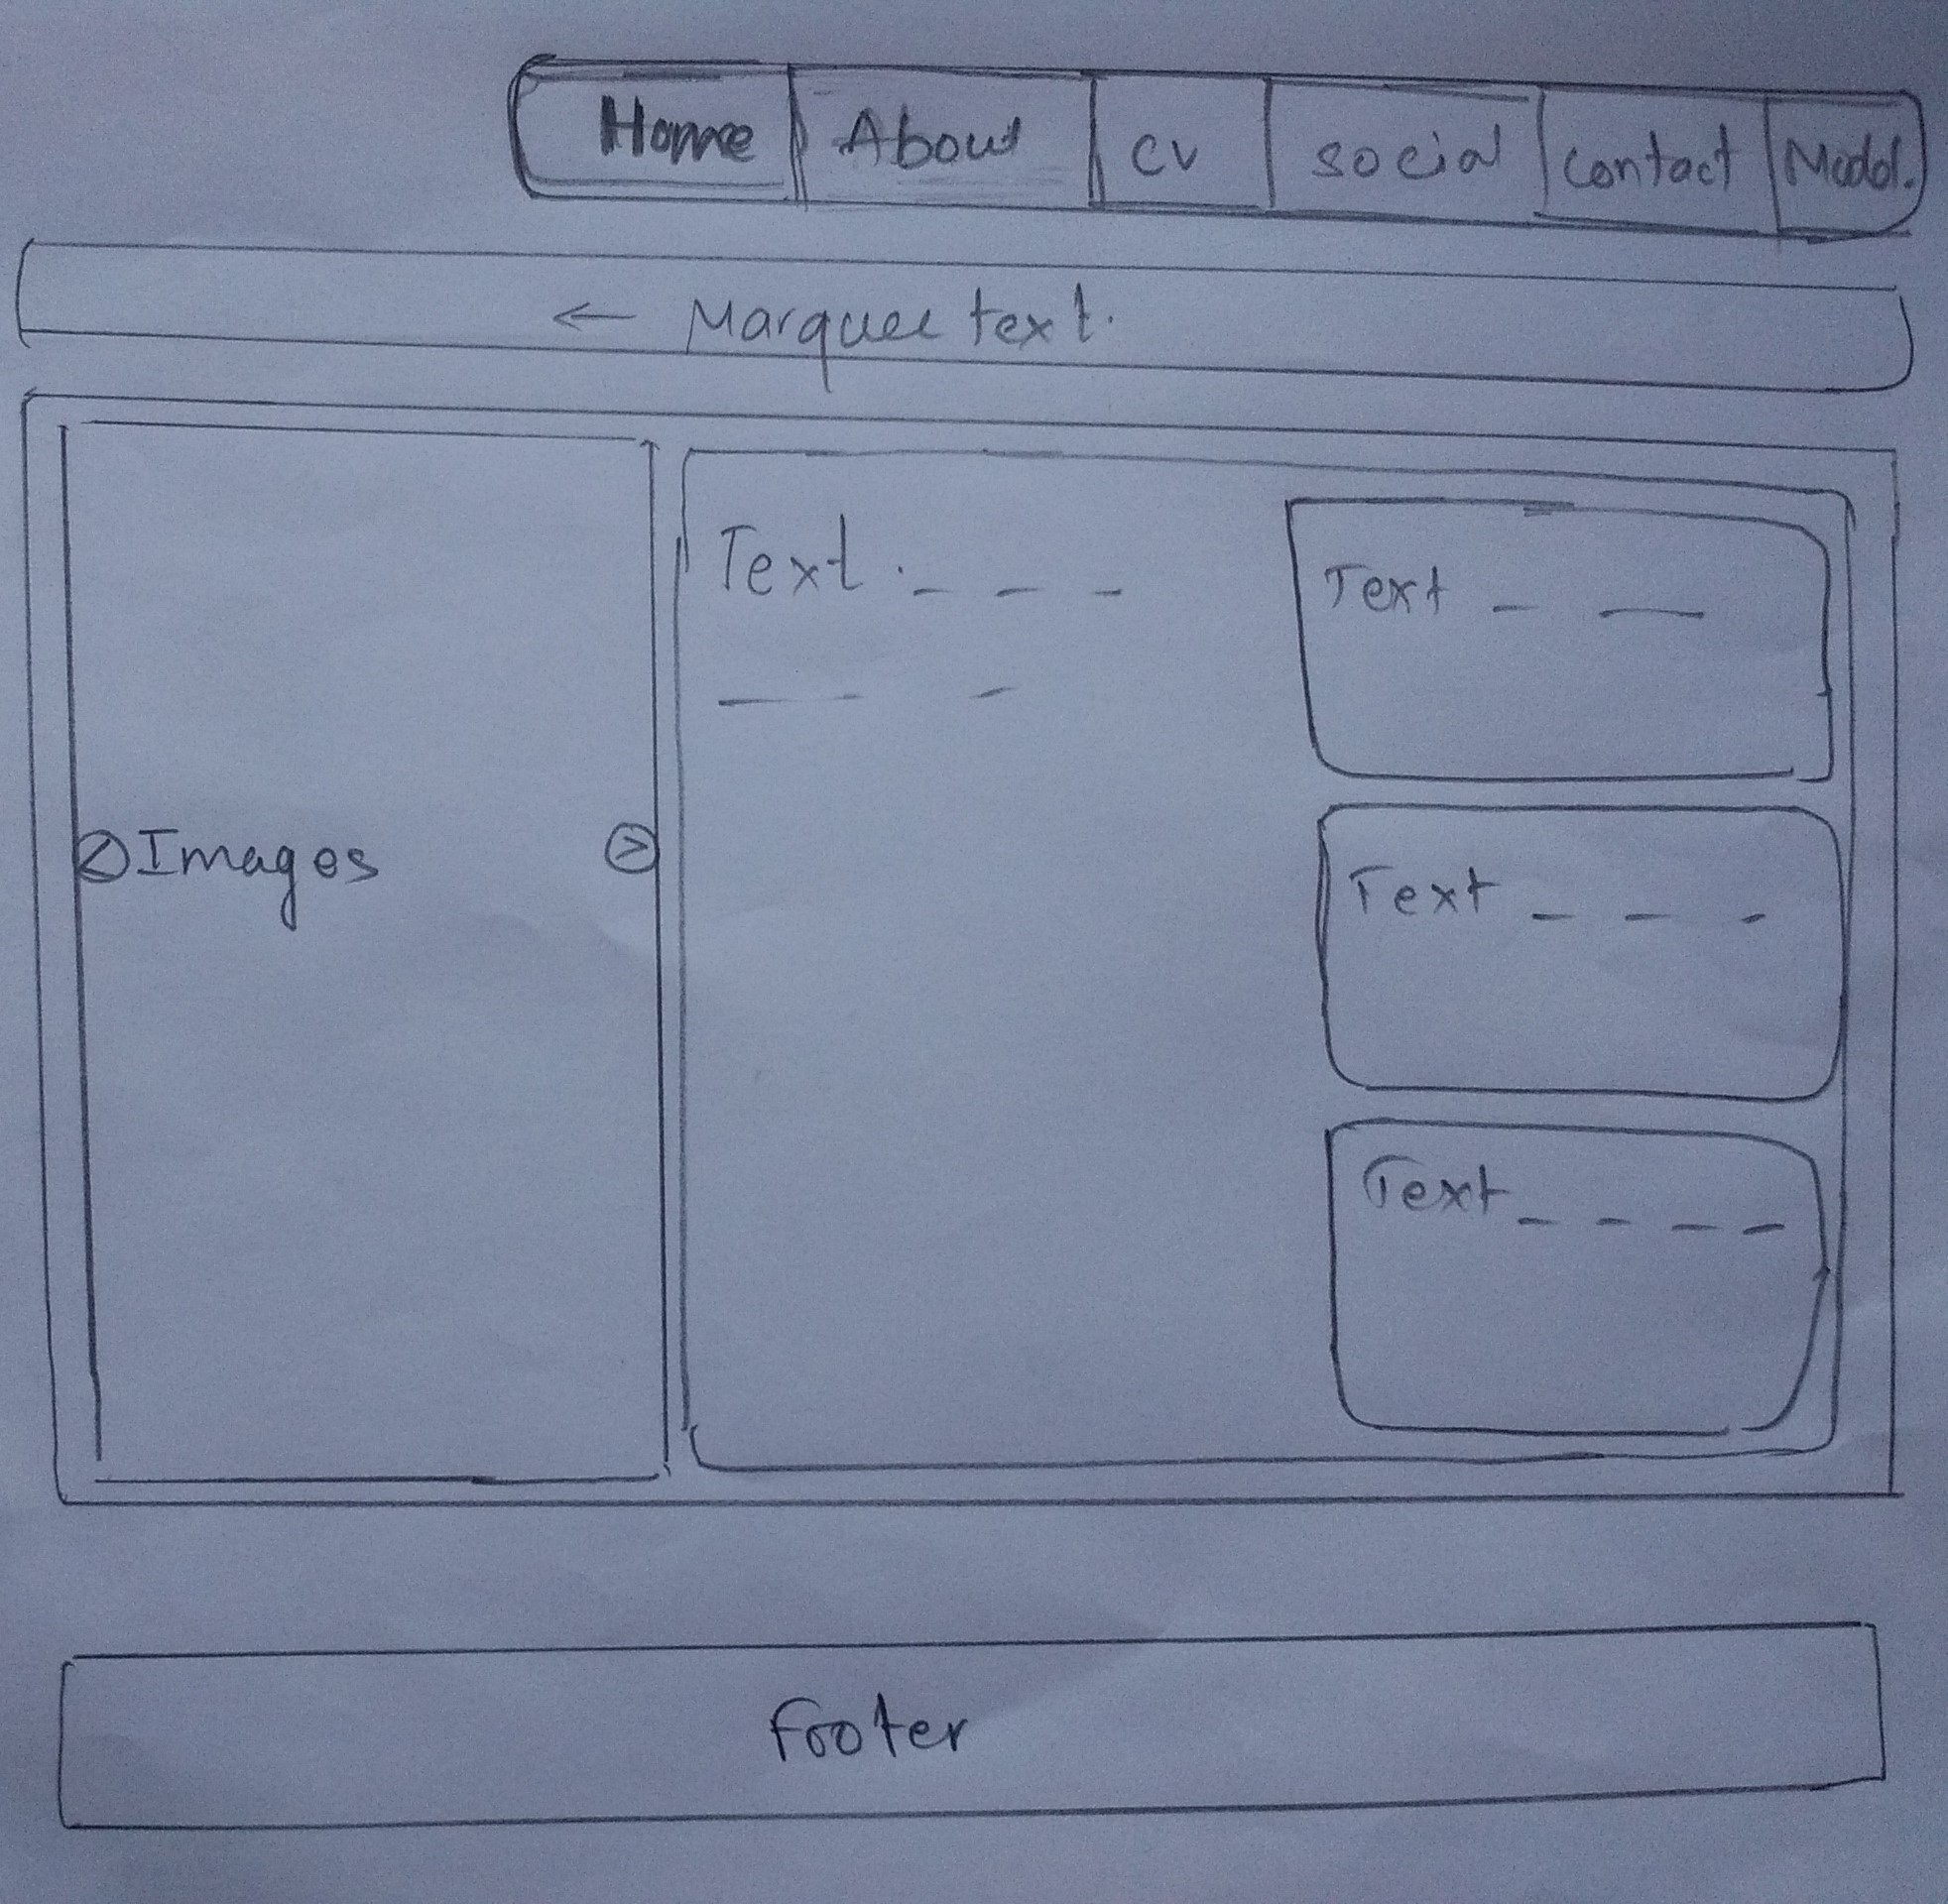 Home About CV social contact Modal.
← Marquee text.
Text . _ _ _
Text _ _
< Images >
Text _ _ _
Text _ _ _ _
Footer